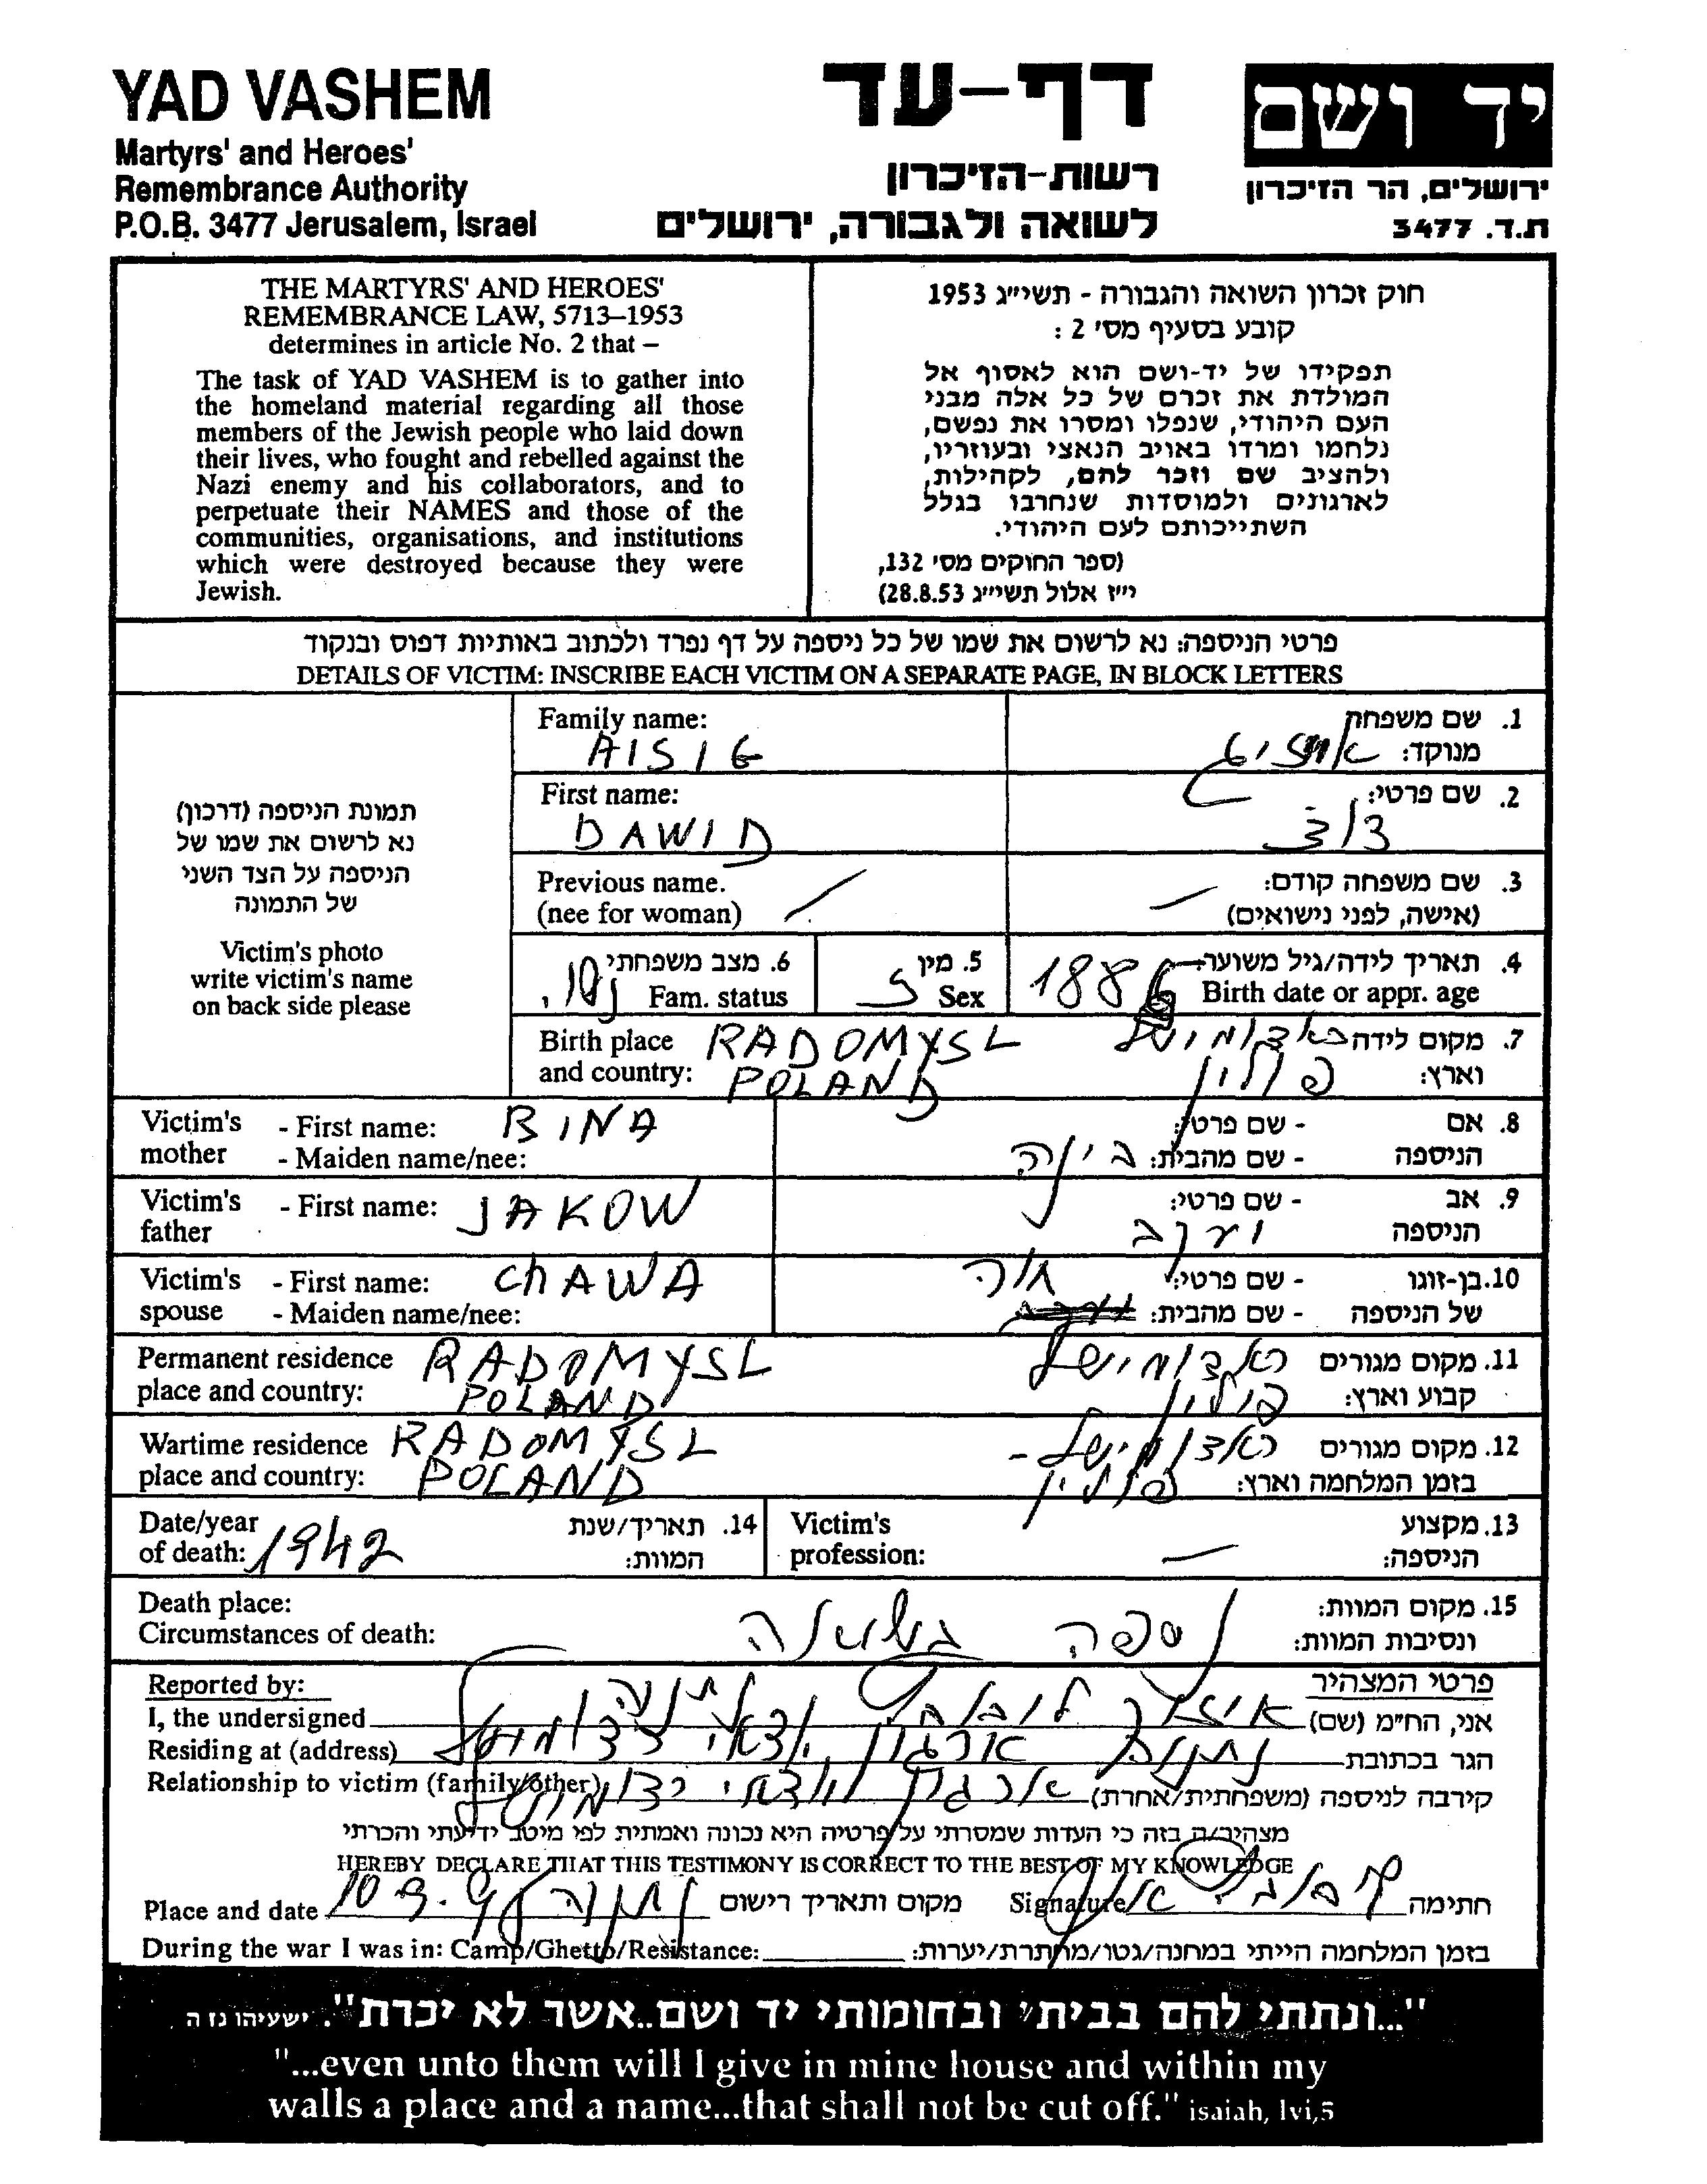 YAD VASHEM
Martyrs' and Heroes'
Remembrance Authority
P.O.B. 3477 Jerusalem, Israel
דף-עד
רשות-הזיכרון
לשואה ולגבורה, ירושלים
יד ושם
ירושלים, הר הזיכרון
ת.ד. 3477
THE MARTYRS' AND HEROES'
REMEMBRANCE LAW, 5713–1953
determines in article No. 2 that –
The task of YAD VASHEM is to gather into
the homeland material regarding all those
members of the Jewish people who laid down
their lives, who fought and rebelled against the
Nazi enemy and his collaborators, and to
perpetuate their NAMES and those of the
communities, organisations, and institutions
which were destroyed because they were
Jewish.
חוק זכרון השואה והגבורה - תשי״ג 1953
קובע בסעיף מס׳ 2 :
תפקידו של יד-ושם הוא לאסוף אל
המולדת את זכרם של כל אלה מבני
העם היהודי, שנפלו ומסרו את נפשם,
נלחמו ומרדו באויב הנאצי ובעוזריו,
ולהציב שם וזכר להם, לקהילות,
לארגונים ולמוסדות שנחרבו בגלל
השתייכותם לעם היהודי.
(ספר החוקים מס׳ 132,
י״ז אלול תשי״ג 28.8.53)
פרטי הניספה: נא לרשום את שמו של כל ניספה על דף נפרד ולכתוב באותיות דפוס ובנקוד
DETAILS OF VICTIM: INSCRIBE EACH VICTIM ON A SEPARATE PAGE, IN BLOCK LETTERS
תמונת הניספה (דרכון)
נא לרשום את שמו של
הניספה על הצד השני
של התמונה
Victim's photo
write victim's name
on back side please
Family name:
AISIG
1. שם משפחה
מנוקד:
First name:
DAWID
2. שם פרטי:
דוד
Previous name.
(nee for woman) /
3. שם משפחה קודם:
(אישה, לפני נישואים) —
6. מצב משפחתי
Fam. status נשוי
5. מין
Sex ז
4. תאריך לידה/גיל משוער
Birth date or appr. age 1886
Birth place RADOMYSL
and country: POLAND
7. מקום לידה ראדומישל
וארץ: פולין
Victim's - First name: BINA
mother - Maiden name/nee:
8. אם - שם פרטי:
הניספה - שם מהבית: בינה
Victim's - First name: JAKOW
father
9. אב - שם פרטי:
הניספה יעקב
Victim's - First name: ChAWA
spouse - Maiden name/nee:
10. בן-זוגו - שם פרטי: חוה
של הניספה - שם מהבית:
Permanent residence RADOMYSL
place and country: POLAND
11. מקום מגורים ראדומישל
קבוע וארץ: פולין
Wartime residence RADOMYSL
place and country: POLAND
12. מקום מגורים ראדומישל -
בזמן המלחמה וארץ: פולין
Date/year
of death: 1942
14. תאריך/שנת
המוות:
Victim's
profession: —
13. מקצוע
הניספה:
Death place:
Circumstances of death:
15. מקום המוות:
ונסיבות המוות: נספה בשואה
Reported by:
פרטי המצהיר
I, the undersigned
אני, החי״מ (שם)
Residing at (address)
הגר בכתובת נתניה ארגון יוצאי רדומישל
Relationship to victim (family/other)
קירבה לניספה (משפחתית/אחרת) ארגון יוצאי רדומישל
מצהיר/ה בזה כי העדות שמסרתי על פרטיה היא נכונה ואמתית לפי מיטב ידיעתי והכרתי
HEREBY DECLARE THAT THIS TESTIMONY IS CORRECT TO THE BEST OF MY KNOWLEDGE
Place and date נתניה מקום ותאריך רישום
Signature חתימה
During the war I was in: Camp/Ghetto/Resistance:
בזמן המלחמה הייתי במחנה/גטו/מחתרת/יערות:
"...ונתתי להם בביתי ובחומותי יד ושם..אשר לא יכרת". ישעיהו נז ה
"...even unto them will I give in mine house and within my
walls a place and a name...that shall not be cut off." isaiah, lvi,5